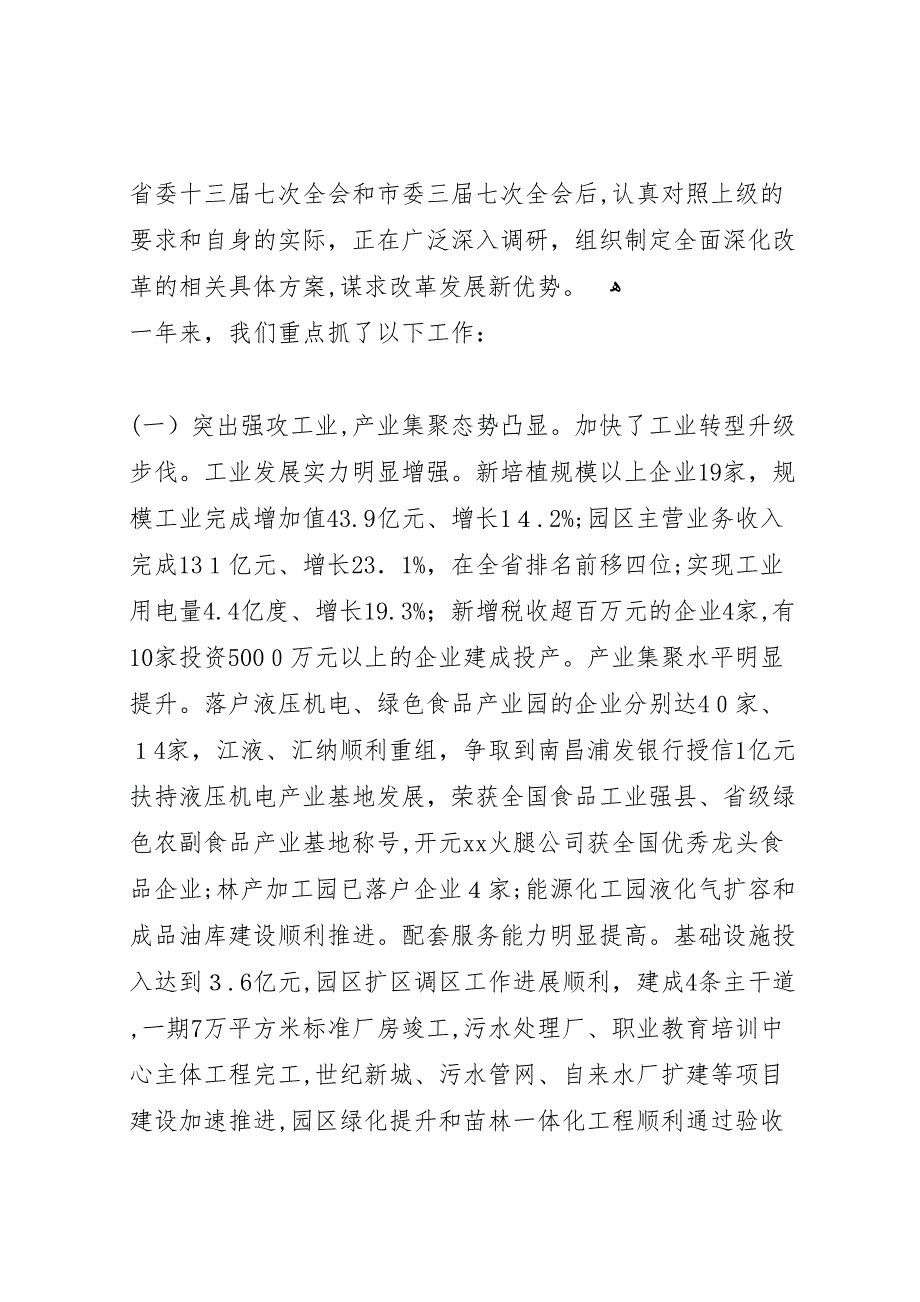 省委十三届七次全会和市委三届七次全会后,认真对照上级的
要求和自身的实际，正在广泛深入调研，组织制定全面深化改
革的相关具体方案,谋求改革发展新优势。 ﻬ
一年来，我们重点抓了以下工作：
(一）突出强攻工业,产业集聚态势凸显。加快了工业转型升级
步伐。工业发展实力明显增强。新培植规模以上企业19家，规
模工业完成增加值43.9亿元、增长1４.2%;园区主营业务收入
完成13１亿元、增长23．1%，在全省排名前移四位;实现工业
用电量4.4亿度、增长19.3%；新增税收超百万元的企业4家,有
10家投资500０万元以上的企业建成投产。产业集聚水平明显
提升。落户液压机电、绿色食品产业园的企业分别达4０家、
１4家，江液、汇纳顺利重组，争取到南昌浦发银行授信1亿元
扶持液压机电产业基地发展，荣获全国食品工业强县、省级绿
色农副食品产业基地称号,开元xx火腿公司获全国优秀龙头食
品企业;林产加工园已落户企业４家;能源化工园液化气扩容和
成品油库建设顺利推进。配套服务能力明显提高。基础设施投
入达到３.6亿元,园区扩区调区工作进展顺利，建成4条主干道
,一期7万平方米标准厂房竣工,污水处理厂、职业教育培训中
心主体工程完工,世纪新城、污水管网、自来水厂扩建等项目
建设加速推进,园区绿化提升和苗林一体化工程顺利通过验收